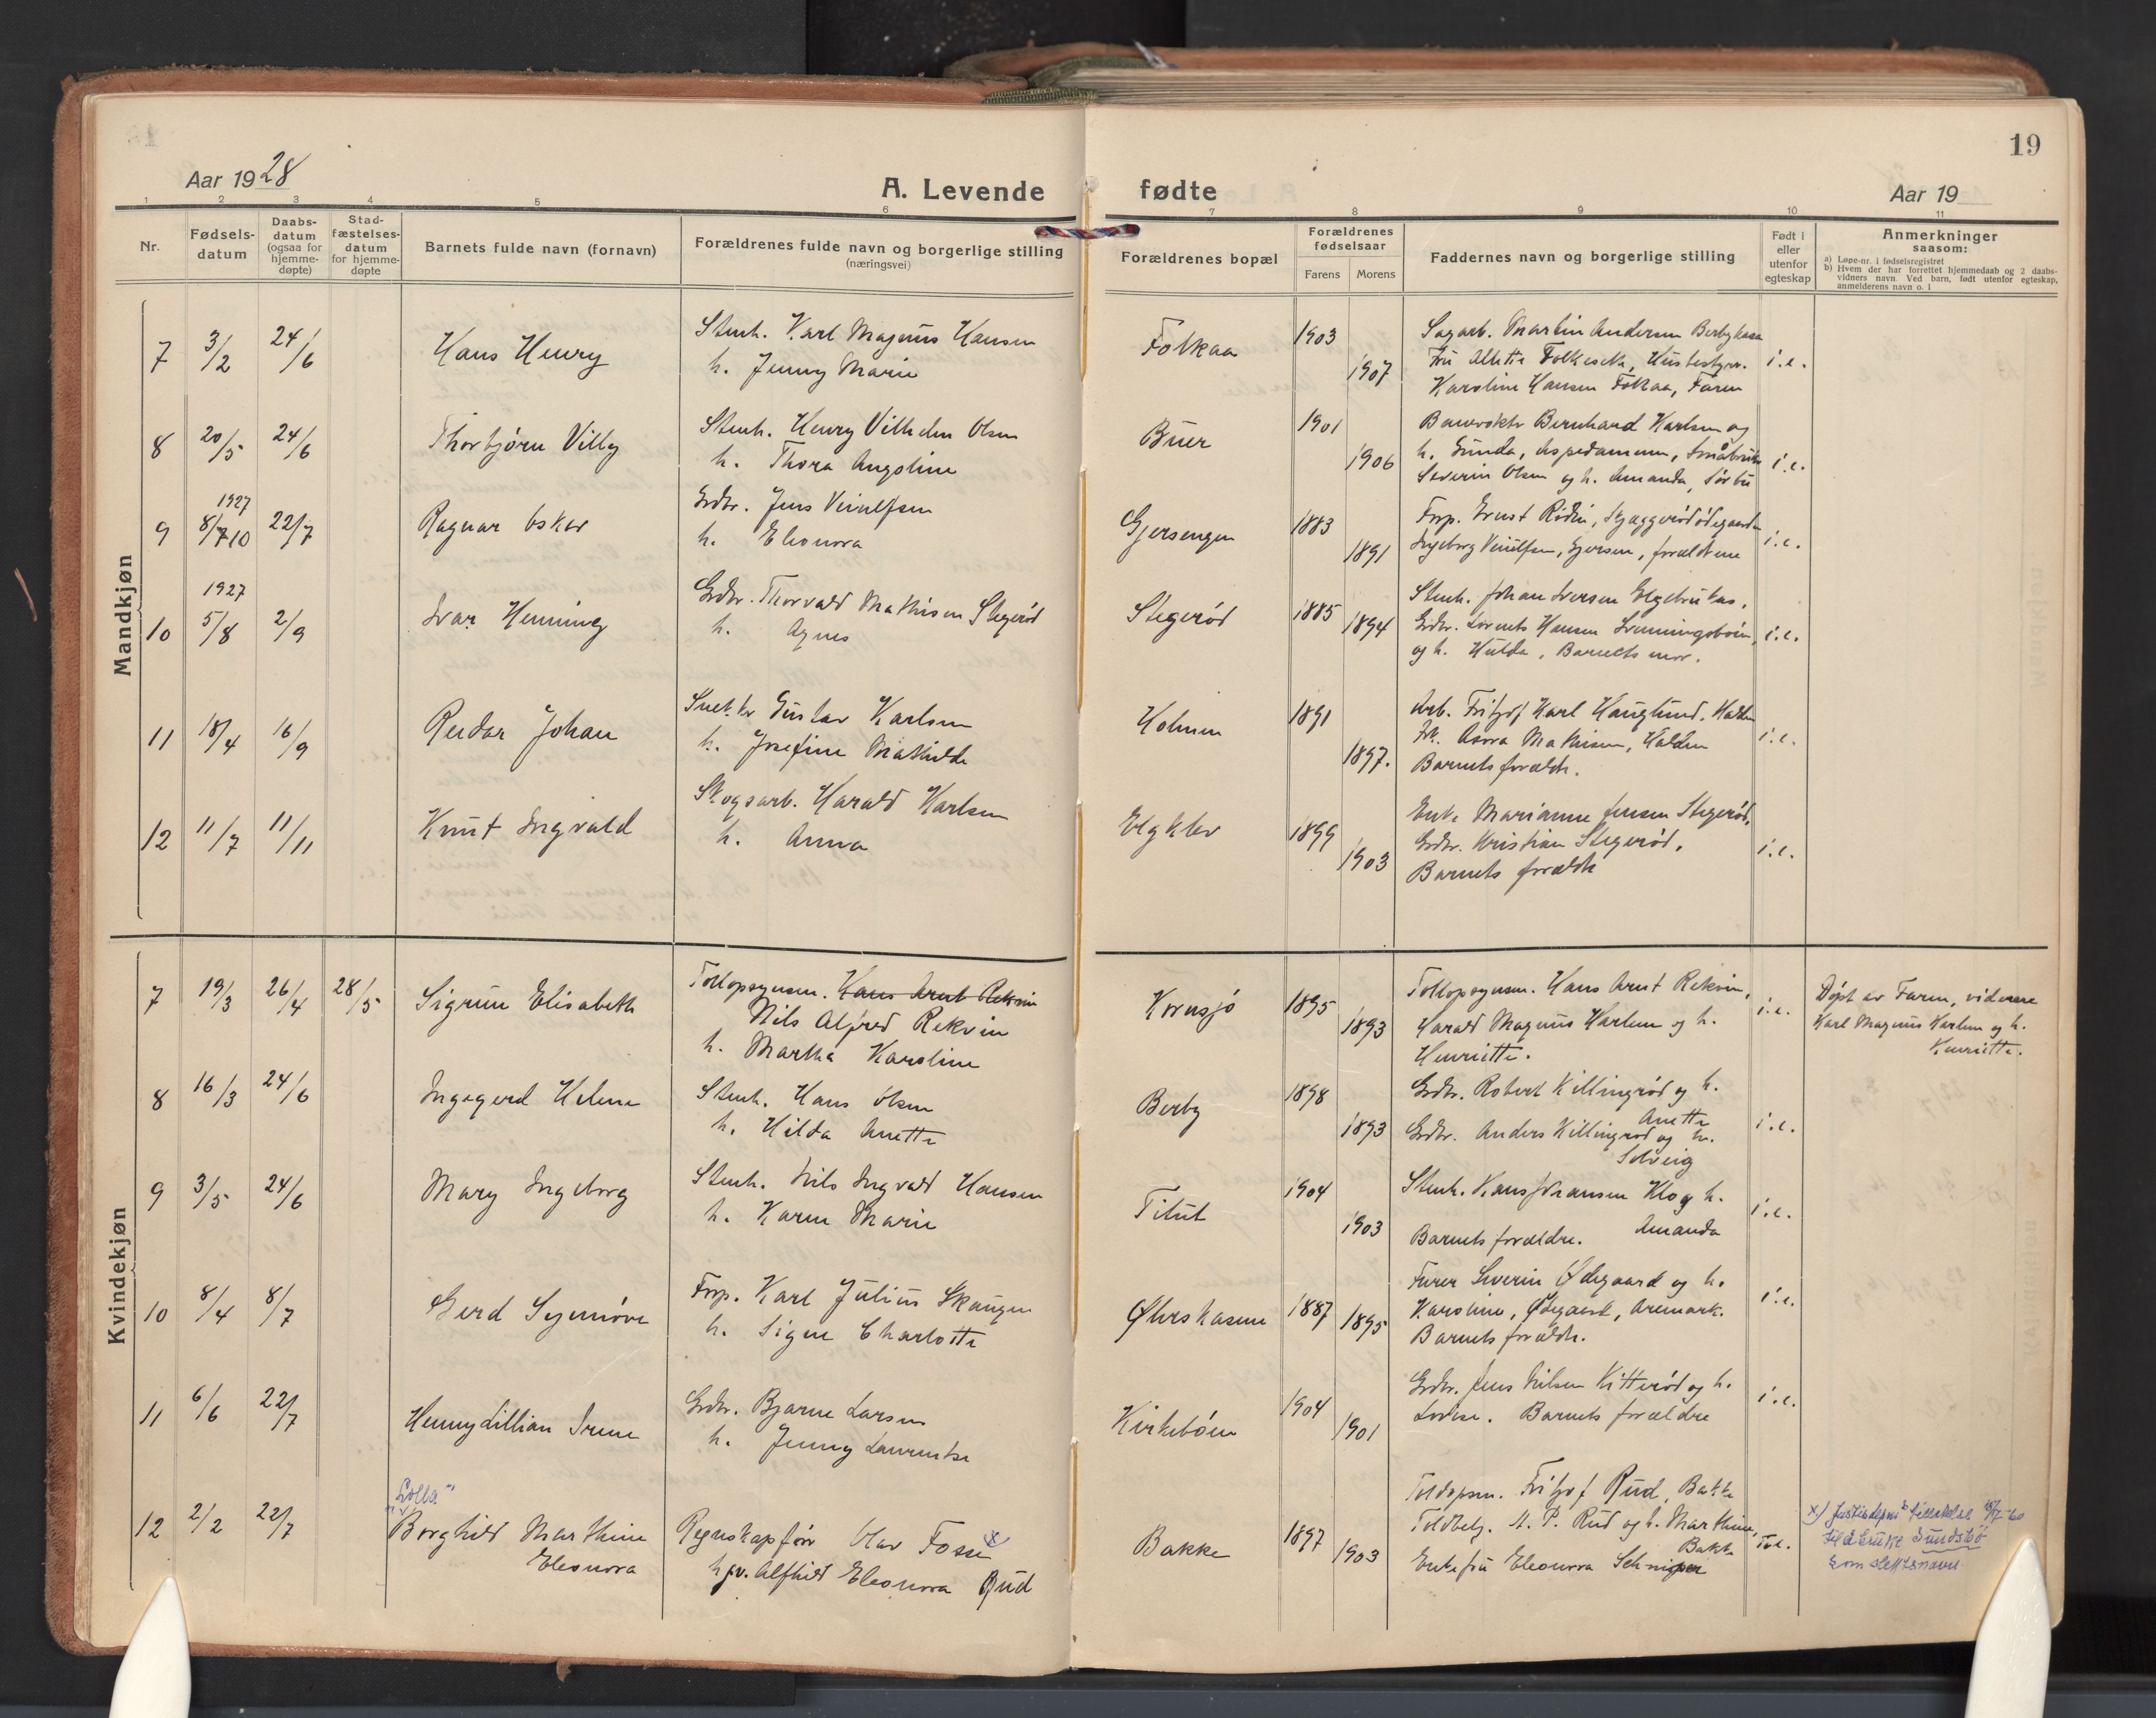 19
Aar 1928
A. Levende
fødte
Aar 19
1 2 3 4 5 6 7 8 9 10 11
Nr.
Fødsels-
datum
Daabs-
datum
(ogsaa for
hjemme-
døpte)
Stad-
fæstelses-
datum
for hjemme-
døpte
Barnets fulde navn (fornavn)
Forældrenes fulde navn og borgerlige stilling
(næringsvei)
Forældrenes bopæl
Forældrenes
fødselsaar
Farens Morens
Faddernes navn og borgerlige stilling
Født i
eller
utenfor
egteskap
Anmerkninger
saasom:
a) Løpe-nr. i fødselsregistret
b) Hvem der har forrettet hjemmedaab og 2 daabs-
vidners navn. Ved barn, født utenfor egteskap,
anmelderens navn o. l
Mandkjøn
7 3/2 24/6 Hans Henry
Stenh. Karl Magnus Hansen
h. Jenny Marie
Folkaa 1903 1907
Sagarb. Martin Andersen Berbykasa
Fru Alette Folkeseth, Husbestyrr.
Karoline Hansen Folkaa, Faren
i.e.
8 20/5 24/6 Thorbjørn Villy
Stenh. Henry Vilhelm Olsen
h. Thora Angoline
Buer 1901 1906
Banevokter Bernhard Karlsen og
h. Gunda, Aspedammen, Småbruker
Severin Olsen og h. Amanda, Sørbu
i.e.
9 1927 8/10 22/7 Ragnar Oskar
Grdbr. Jens Vinulfsen
h. Eleonora
Gjersengen 1883 1891
Forp. Ernst Rødin, Skjeggerødødegaarden
Ingeborg Vinulfsen, Gjersen, forældrene
i.e.
10 1927 5/8 2/9 Ivar Henning
Grdbr. Thorvald Mathisen Stegerød
h. Agnes
Stegerød 1885 1894
Stenh. Johan Iversen Elgebrukas,
Grdbr. Lorents Hansen
og h. Hulda, Barnets mor.
i.e.
11 18/4 16/9 Reidar Johan
Snekker Gustav Karlsen
h. Josefine Mathilde
Holmen 1891 1897.
Arb. Fritjof Karl Hauglund, Halden
Frk. Asora Mathisen, Halden
Barnets forældr.
i.e.
12 11/7 11/11 Knut Ingvald
Skogsarb. Harald Karlsen
h. Anna
Elgklev 1899 1903
Enke Marianne Jensen Stegerød,
Grdbr. Kristian Stegerød,
Barnets forældr
i.e.
Kvindekjøn
7 19/3 26/4 28/5 Sigrun Elisabeth
Tollopsynsm. Hans Arnt Rekvin
Nils Alfred Rekvin
h. Martha Karoline
Kornsjø 1895 1893
Tollopsynsm. Hans Arnt Rekvin,
Harald Magnus Karlsen og h.
Henriette.
i.e.
Døpt av Faren, vidnene
Karl Magnus Karlsen og h.
Henriette.
8 16/3 24/6 Ingegerd Helene
Stenh. Hans Olsen
h. Hilda Anette
Berby 1898 1893
Grdbr. Robert Killingrød og h.
Anette
Grdbr. Anders Killingrød og h.
Solveig
i.e.
9 3/5 24/6 Mary Ingeborg
Stenh. Nils Ingvald Hansen
h. Karen Marie
Titut 1904 1903
Stenh. Hans Johansen Klo og h.
Amanda
Barnets forældre.
i.e.
10 8/4 8/7 Gerd Synnøve
Forp. Karl Julius Skaugen
h. Signe Charlotte
Ølerskasene 1887 1895
Furer Severin Ødegaard og h.
Karoline, Ødegaard, Aremark.
Barnets forældr.
i.e.
11 6/6 22/7 Henny Lillian Irene
Grdbr. Bjarne Larsen
h. Jenny Laurentse
Kirkebøen 1904 1901
Grdbr. Jens Nilsen Kitterød og h.
Lovise. Barnets forældre
i.e.
12 2/2 22/7 "Lolla"
Borghild Marthine
Eleonora
Regnskapsfører Olav Fosse x
hjv. Alfhild Eleonora Rud
Bakke 1897 1903
Toldopsm. Fritjof Rud, Bakke
Toldbetj. A. P. Rud og h. Marthine,
Bakke
Enkefru Eleonora
i.e.
x) Justisdeps tillatelse 18/7-60
til å bruke Sundsbø
som slektsnavn